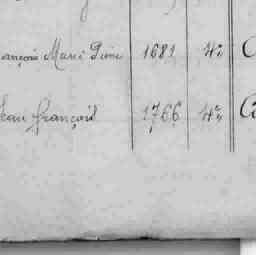 rançois Marie Pierre 1681 4º C
Jean françois 1766 4º Ca